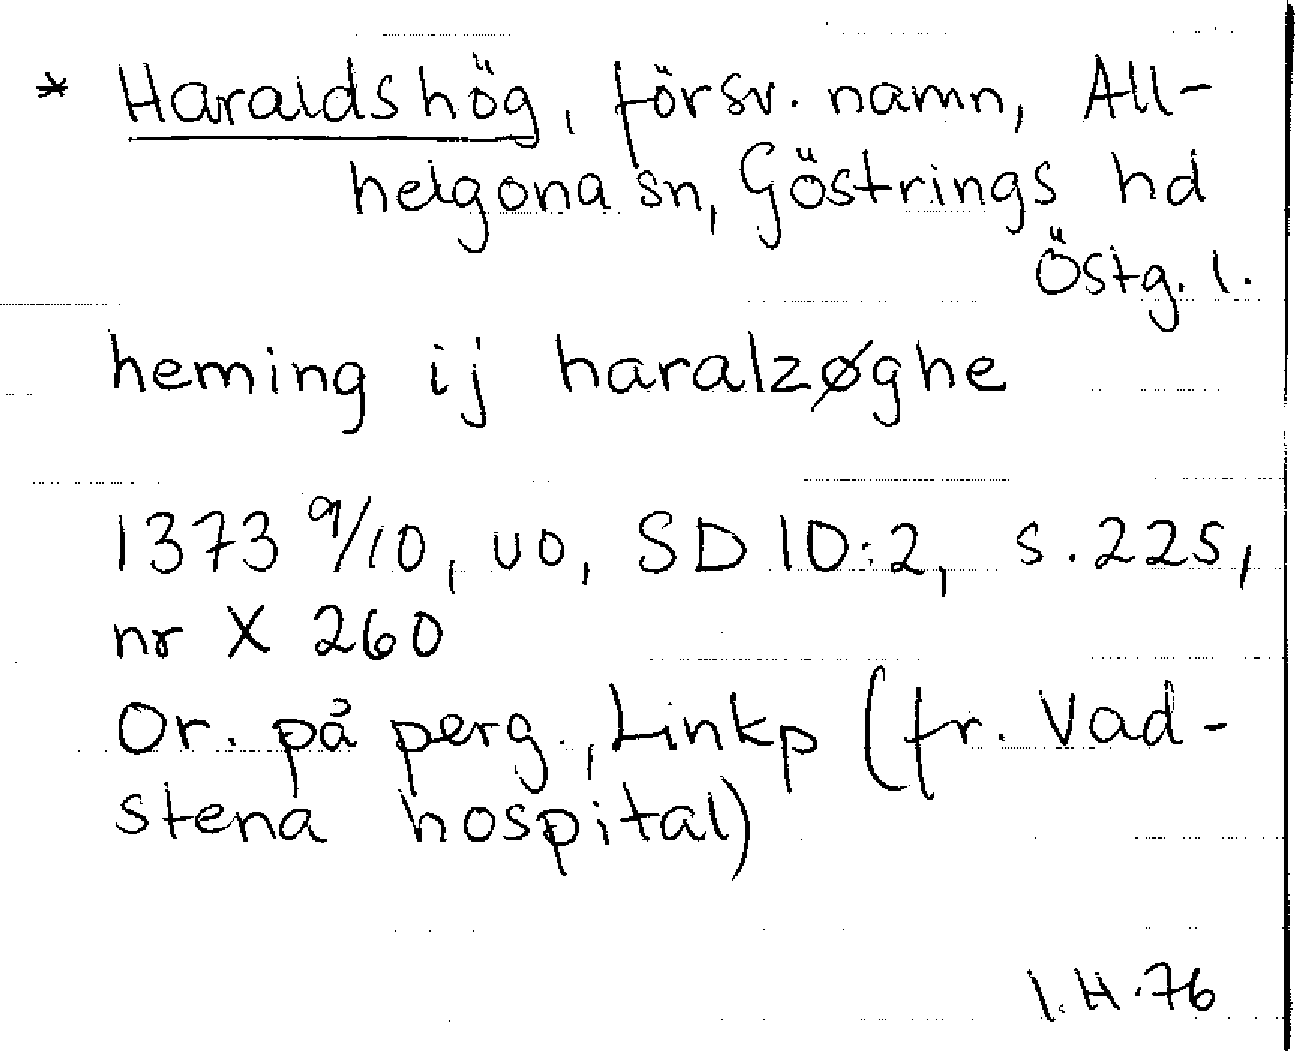 * Haraldshög, försv. namn, All-
helgona sn, Göstrings hd
Östg. l.
heming ij haralzøghe
1373 9/10, uo, SD 10:2, s. 225,
nr X 260
Or. på perg., Linkp (fr. Vad-
stena hospital)
I.H.76